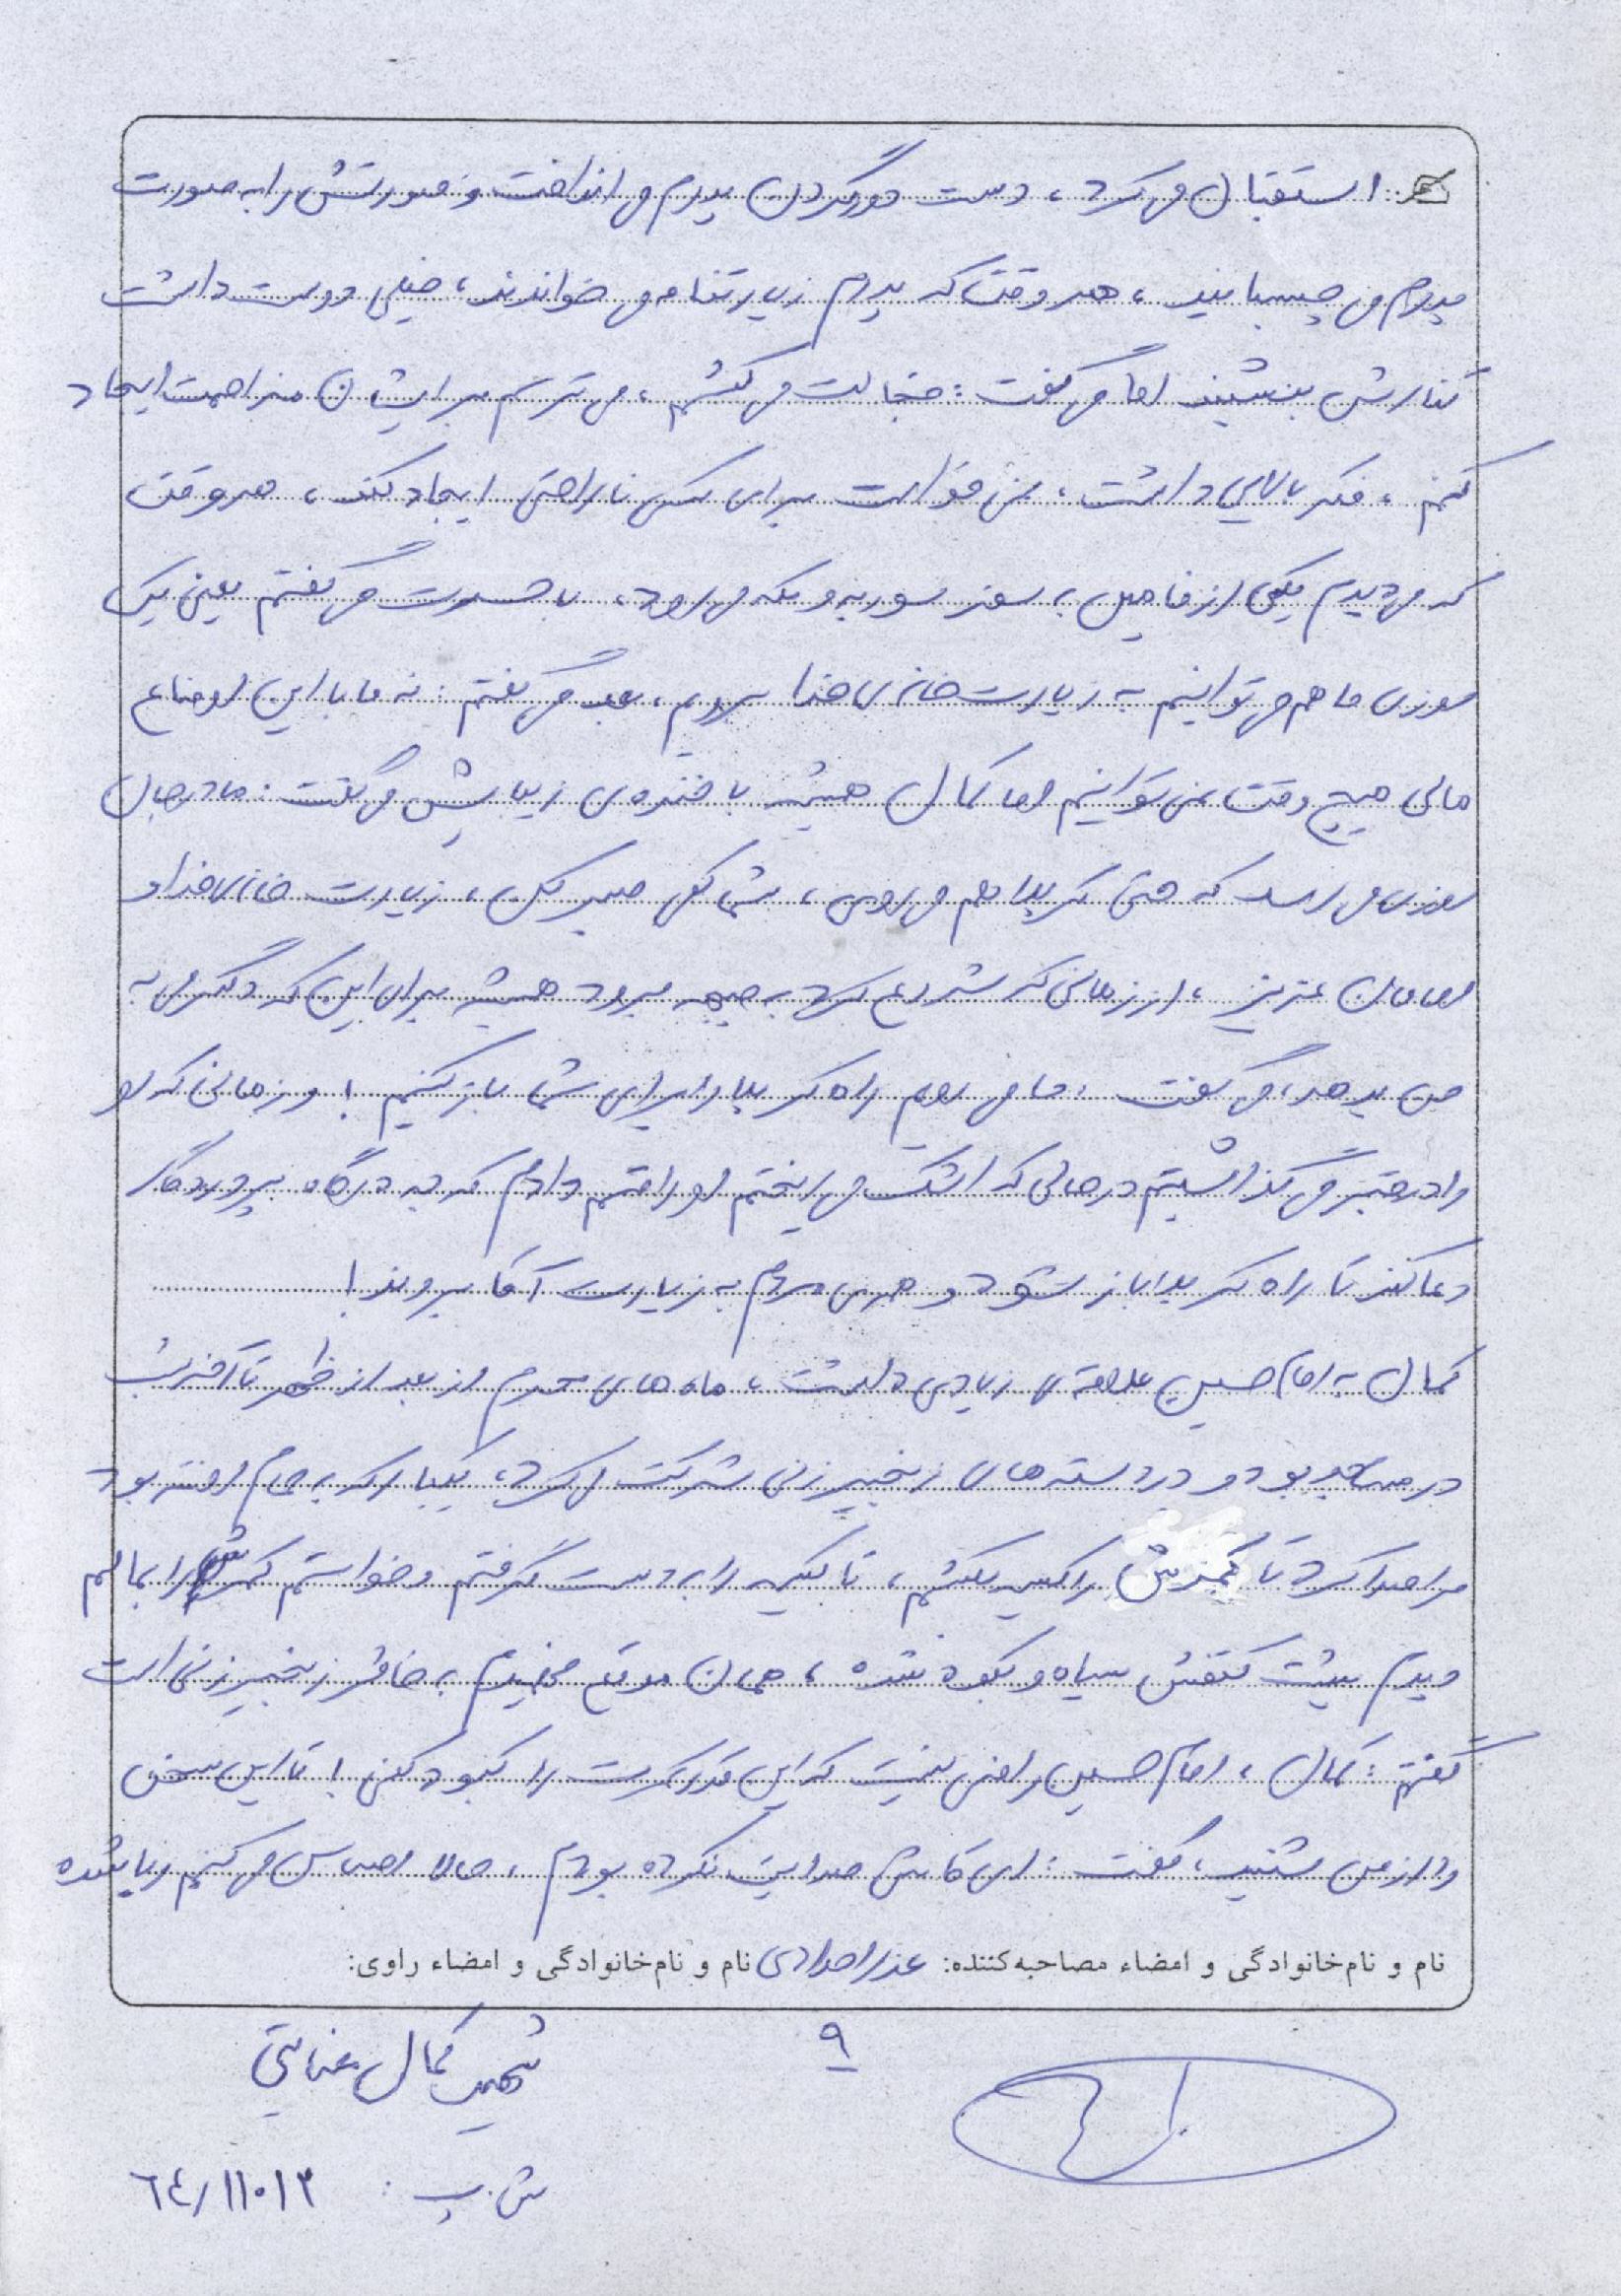 استقبال می‌کرد، دست دور گردن پدرم می‌انداخت و صورتش را به صورت
پدرم می‌چسبانید، هر وقت که پدرم زیارتنامه می‌خواندند، خیلی دوست داشت
کنارش بنشیند اما می‌گفت: خجالت می‌کشم، می‌ترسم برایشان مزاحمت ایجاد
کنم، فکر بالایی داشت، نمی‌خواست برای کسی ناراحتی ایجاد کند، هر وقت
که می‌دیدم یکی از فامیل به سفر سوریه و مکه می‌رود، با حسرت می‌گفتم یعنی یک
روزی ما هم می‌توانیم به زیارت خانه‌ی خدا برویم، بعد می‌گفتم: نه ما با این اوضاع
مالی هیچ وقت نمی‌توانیم اما کمال همیشه با خنده‌ی زیبایش می‌گفت: مادرجان
روزی می‌رسد که حتی کربلا هم می‌روی، شما کمی صبر کن، زیارت خانه‌ی خدا و
امامان عزیز، از زمانی که شروع کرد به جبهه برود همیشه برای این که دلگرمی به
من بدهد، می‌گفت: ما می‌رویم راه کربلا را برای شما باز کنیم! و زمانی که او
را در قبر می‌گذاشتیم در حالی که اشک می‌ریختم او را قسم دادم که به درگاه پروردگار
دعا کند تا راه کربلا باز شود و همه‌ی مردم به زیارت آقا بروند!
کمال به امام حسین علاقه‌ی زیادی داشت، ماه‌های محرم از بعد از ظهر تا آخر شب
در مساجد بود و در دسته‌های زنجیرزنی شرکت می‌کرد، یکبار که به حمام رفته بود
مرا صدا کرد تا کمرش را کیسه بکشم، تا کیسه را به دست گرفتم و خواستم کمرش را بمالم
دیدم پشت کتفش سیاه و کبود شده، همان موقع فهمیدم به خاطر زنجیرزنی است
گفتم: کمال، امام حسین راضی نیست که این قدر کمرت را کبود کنی! تا این سخن
را از من شنید، گفت: ای کاش صدایت نکرده بودم، حالا احساس می‌کنم ریا شده
نام و نام‌خانوادگی و امضاء مصاحبه‌کننده: عذرا مرادی نام و نام‌خانوادگی و امضاء راوی:
۹
شهید کمال عنایتی
ش.پ: ٦٤/١١٠١٣